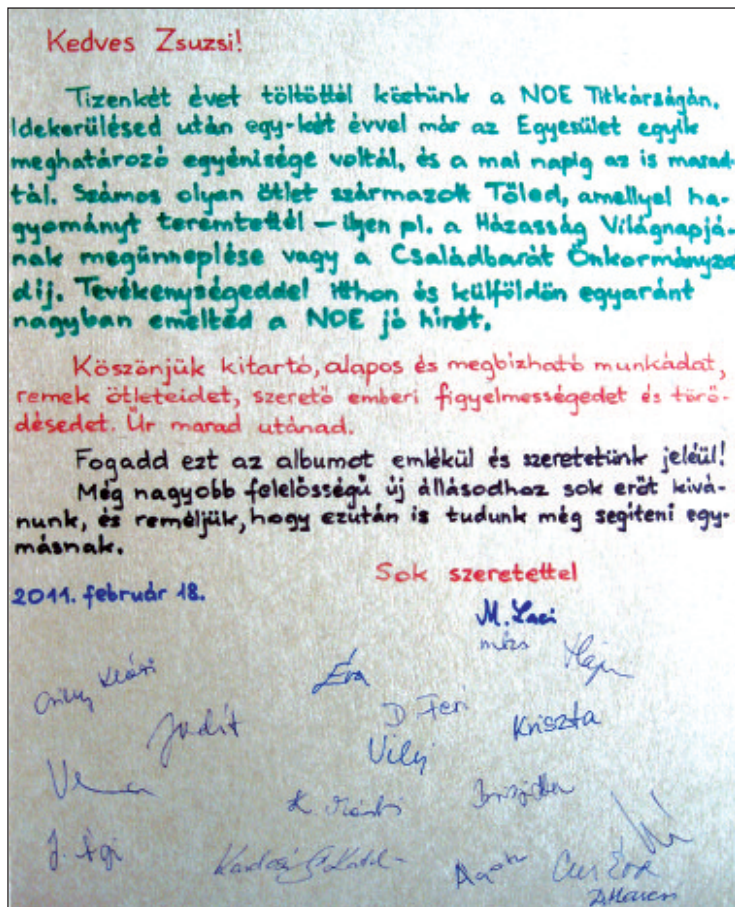 Kedves Zsuzsi!
Tizenkét évet töltöttél köztünk a NOE Titkárságán.
Idekerülésed után egy-két évvel már az Egyesület egyik
meghatározó egyénisége voltál, és a mai napig az is marad-
tál. Számos olyan ötlet származott Tőled, amellyel ha-
gyományt teremtettél – ilyen pl. a Házasság Világnapjá-
nak megünneplése vagy a Családbarát Önkormányzat
díj. Tevékenységeddel itthon és külföldön egyaránt
nagyban emelted a NOE jó hírét.
Köszönjük kitartó, alapos és megbízható munkádat,
remek ötleteidet, szerető emberi figyelmességedet és törő-
désedet. Űr marad utánad.
Fogadd ezt az albumot emlékül és szeretetünk jeléül!
Még nagyobb felelősségű új állásodhoz sok erőt kívá-
nunk, és reméljük, hogy ezután is tudunk még segíteni egy-
másnak.
Sok szeretettel
2011. február 18.
M. Laci
Éva
D. Feri
Judit
Kriszta
Vili
J. Ági
Éva